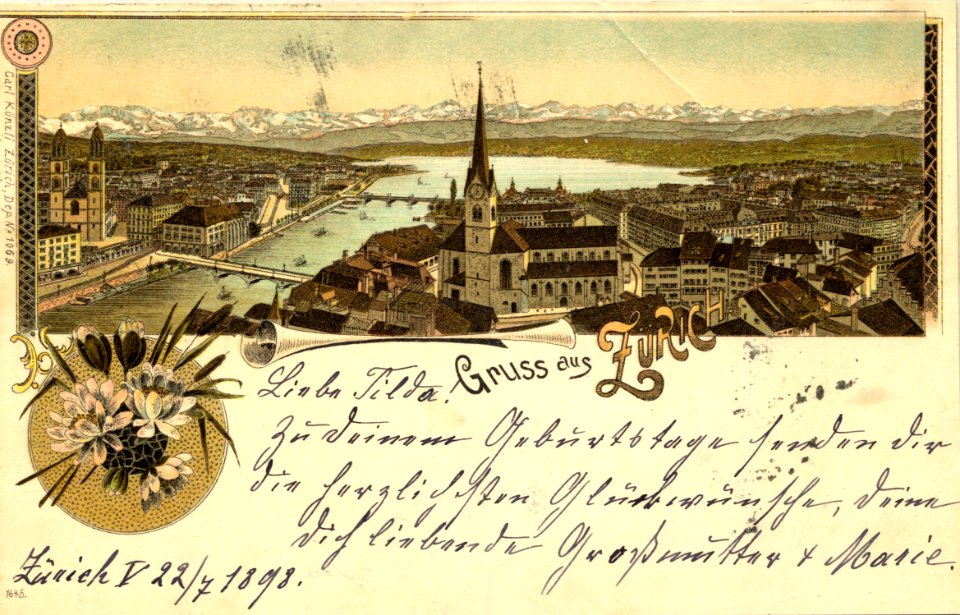 Carl Künzli Zürich, Dep. No 1069.
Gruss aus ZÜRICH
Liebe Tilda!
Zu deinem Geburtstage senden dir
die herzlichsten Glückwünsche, deine
dich liebende Großmutter + Marie.
Zürich V 22/7 1898.
1645.